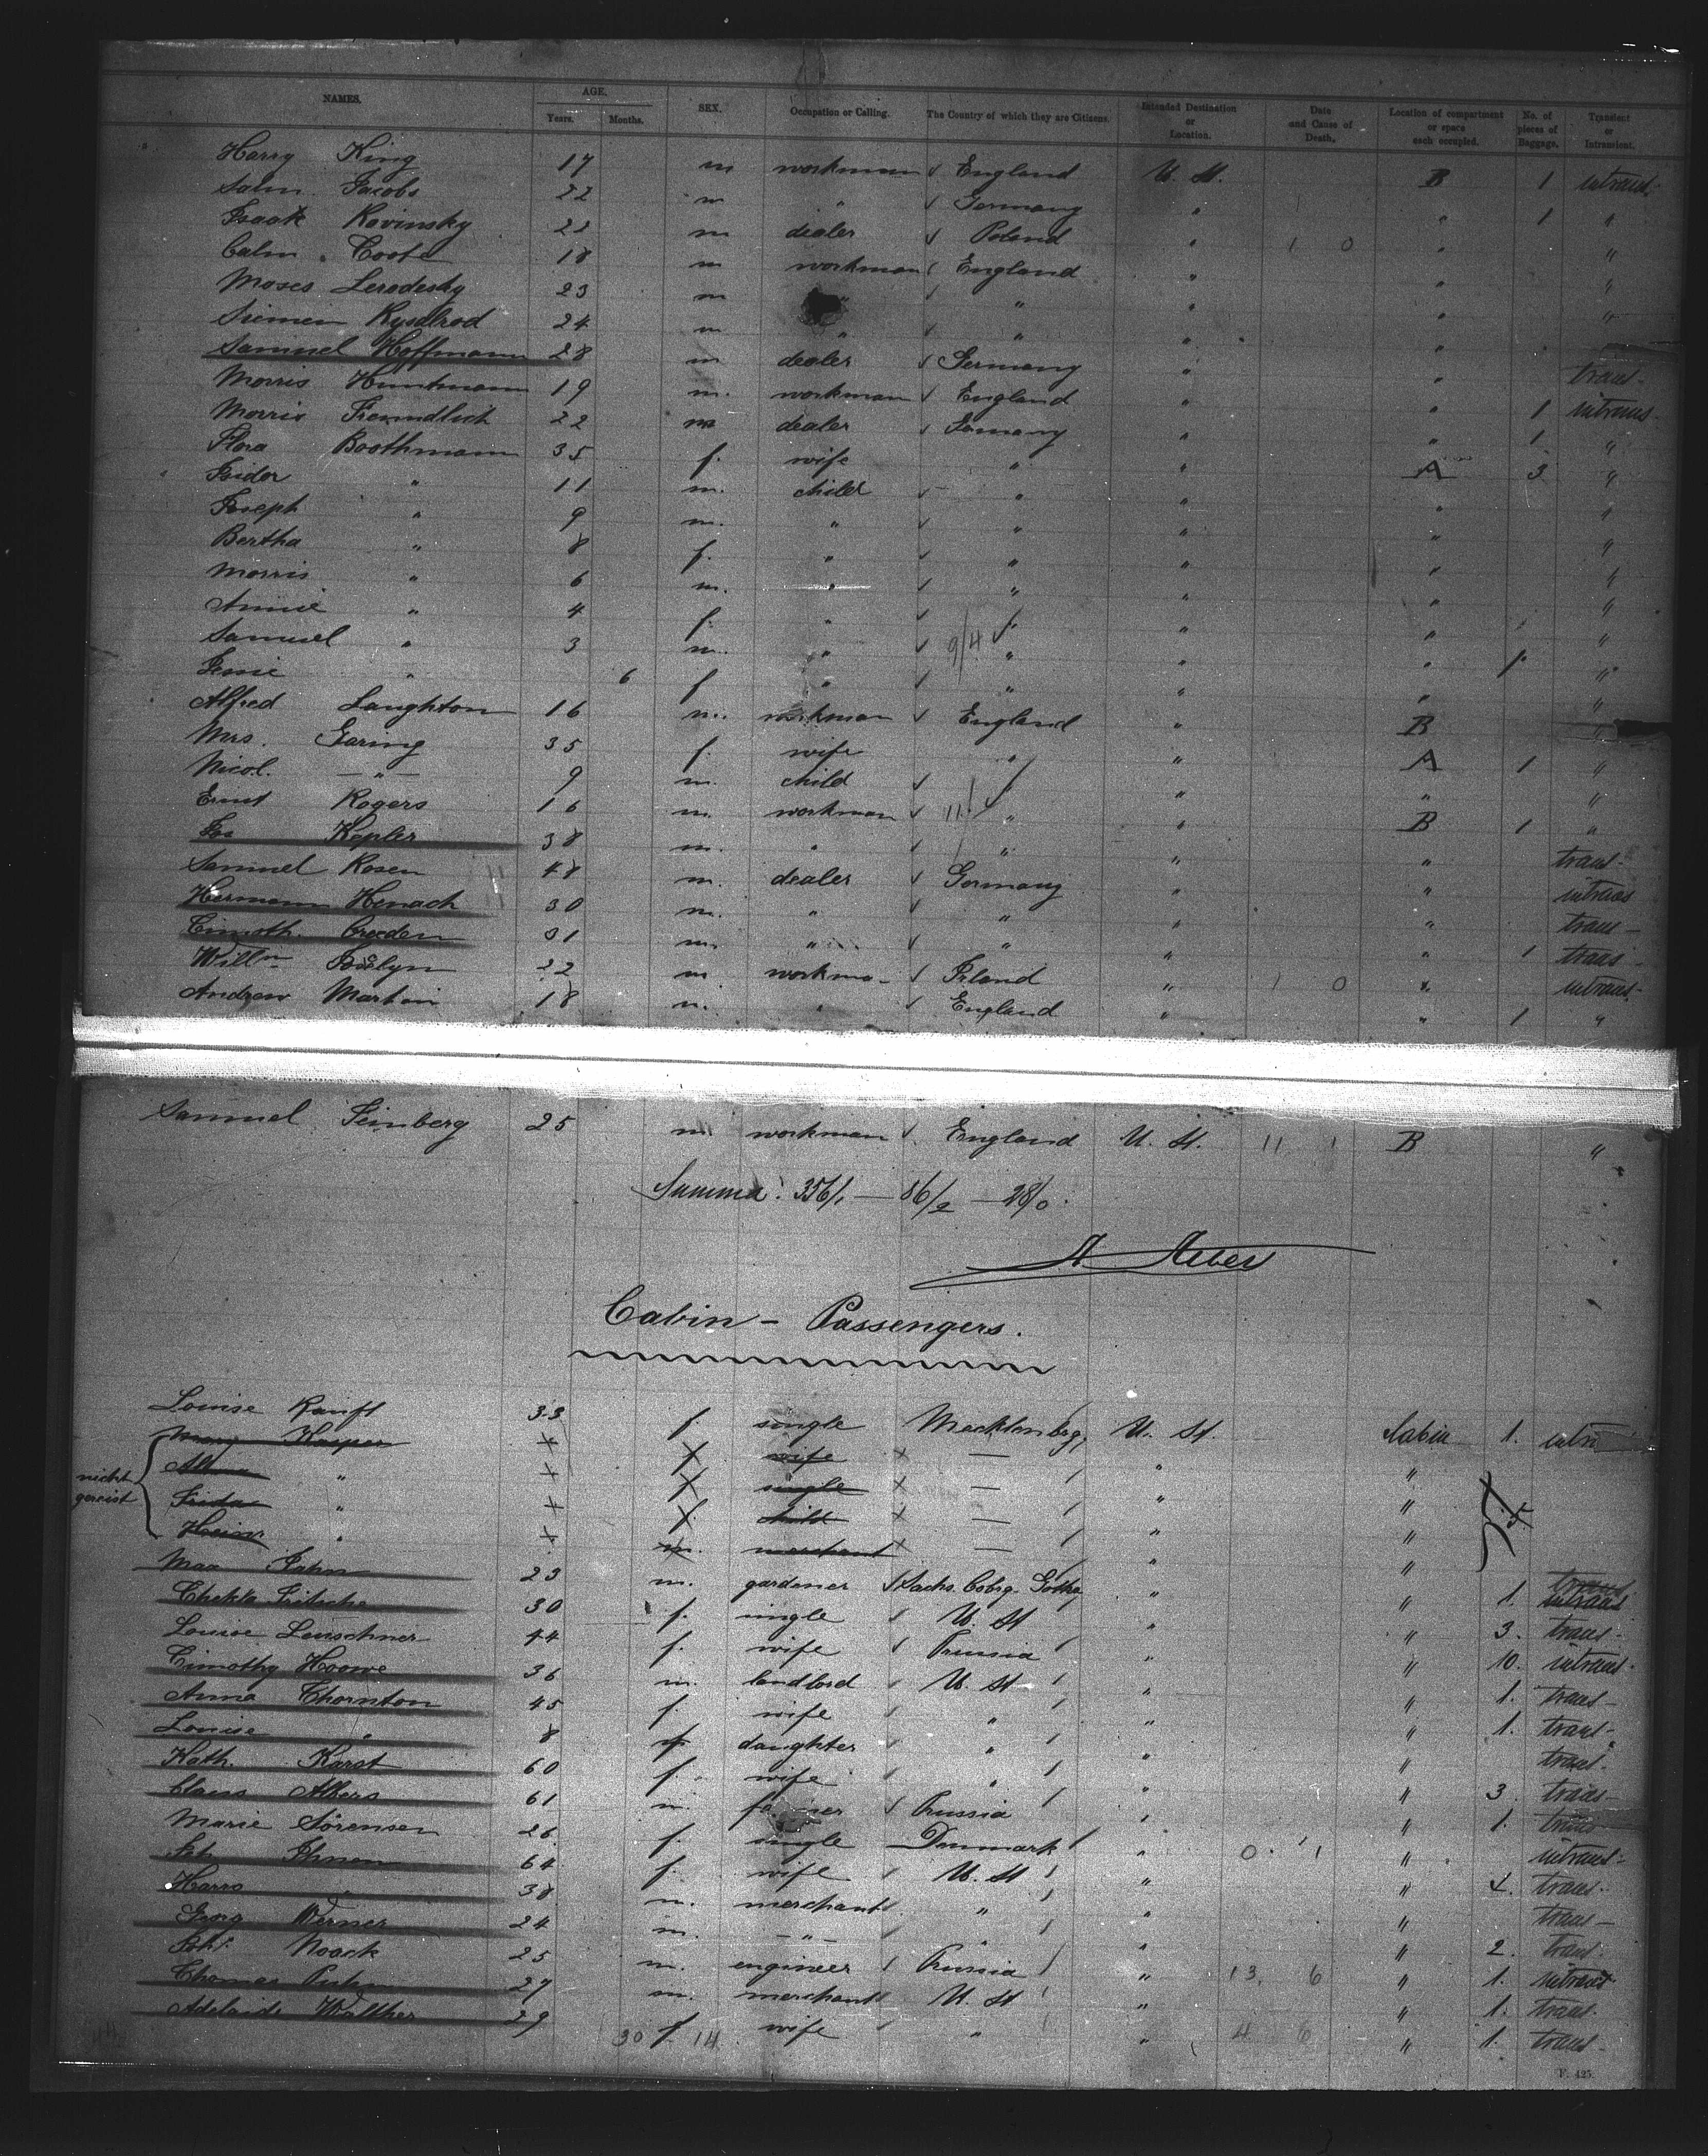 NAMES. AGE. Years. Months. SEX. Occupation or Calling. The Country of which they are Citizens. Intended Destination or Location. Date and Cause of Death. Location of compartment or space each occupied. No. of pieces of Baggage. Transient or Intransient.
Harry King 17 m workman ✓ England U. St. B 1 intrans-
Salm. Jacobs 22 m " ✓ Germany " " 1 "
Isaak Kovinsky 22 m dealer ✓ Poland " 1 0 " "
Calm. Coote 18 m workman England " " "
Moses Lerodesky 23 m " ✓ " " " "
Siemen Kyselrod 24 m " ✓ " " "
Samuel Hoffmann 28 m dealer ✓ Germany " " trans-
Morris Huntmann 19 m. workman ✓ England " " 1 intrans-
Morris Freundlich 22 m dealer ✓ Germany " " 1 "
Flora Boothmann 35 f. wife " " A 3 "
Isidor " 11 m. child ✓ " " " "
Joseph " 9 m. " ✓ " " " "
Bertha " 8 f. " ✓ " " " "
Morris " 6 m. " ✓ " " " "
Annie " 4 f. " ✓ " " " "
Samuel " 3 m. " ✓ 9/4 " " " 1 "
Jenie " 6 f " ✓ " " " "
Alfred Laughton 16 m. workman ✓ England " B "
Mrs. Garing 35 f. wife " " A 1 "
Nicol. —"— 9 m. child ✓ " " "
Ernst Rogers 16 m. workman ✓ 11/ " " B 1 "
Jos Kepler 38 m. " ✓ " " " trans-
Samuel Rosen 48 m. dealer ✓ Germany " " intrans
Hermann Henach 30 m. " ✓ " " " trans-
Timoth. Creeden 31 m. " ✓ " " " 1 trans-
Willm Joslyn 22 m workma- ✓ Irland " 1 0 " intrans-
Andrew Martin 18 m. " ✓ England " " 1 "
Samuel Feinberg 25 m. workman ✓ England U. St. 11 1 B "
Summa: 356/1 — 86/2 — 28/0.
Cabin - Passengers.
Louise Ranft 33 f single Mecklenbrg, U. St. Cabin 1. intra
nicht gereist
Mary Kasper + f wife × — " "
" + f single × — " "
Frida " + f. child × — " "
Heinr. " + m. merchant × — " "
Max Jahn 23 m. gardener ✓ Sachs. Cobrg. Gotha " " 1. intrans
Thekla Fritsche 30 f. single ✓ U. St " " 3. trans-
Louise Leuschner 44 f. wife ✓ Prussia " " 10. intrans-
Timothy Hoowe 36 m. landlord ✓ U. St " " 1. trans-
Anna Thornton 45 f. wife ✓ " " " 1. trans-
Louise " 8 f. daughter ✓ " " " trans-
Kath. Karst 60 f. wife ✓ " " " 3. trans-
Claus Alkers 61 m. farmer ✓ Prussia " " 1. trans-
Marie Sörensen 26 f. single Denmark " 0. 1 " intrans-
Ihnen 64 f. wife ✓ U. St " " 4. trans-
Harro " 38 m. merchant " " " trans-
Georg Werner 24 m. —"— ✓ " " " 2. trans-
Joh. Noack 25 m. engineer ✓ Prussia " 13. 6 " 1. intrans-
Thomas 27 m. merchant U. St " " 1. trans.
Adelaide Walther 29 30 f. 14 wife ✓ " " 4 6 " 1. trans-
F. 425.